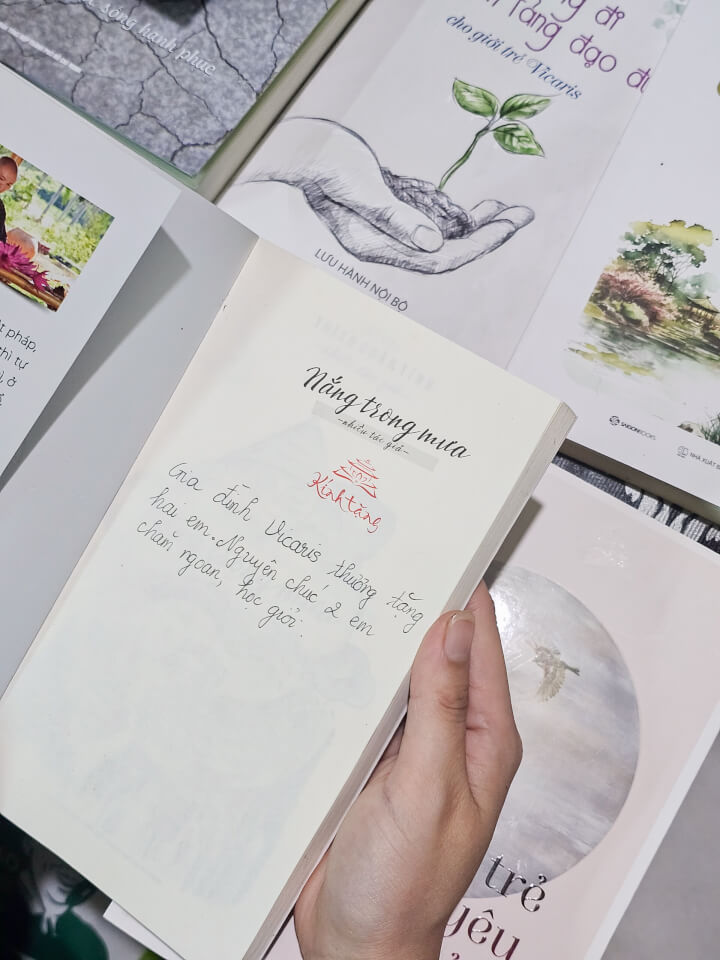 sống hạnh phúc
đi
tảng đạo
cho giới trẻ Vicaris
LƯU HÀNH NỘI BỘ
pháp,
thì tự
ở
SAIGONBOOKS
NHÀ XUẤT
Nắng trong mưa
-nhiều tác giả-
Kính tặng
Gia đình Vicaris thương tặng
hai em. Nguyện chúc 2 em
chăm ngoan, học giỏi.
trẻ
yêu